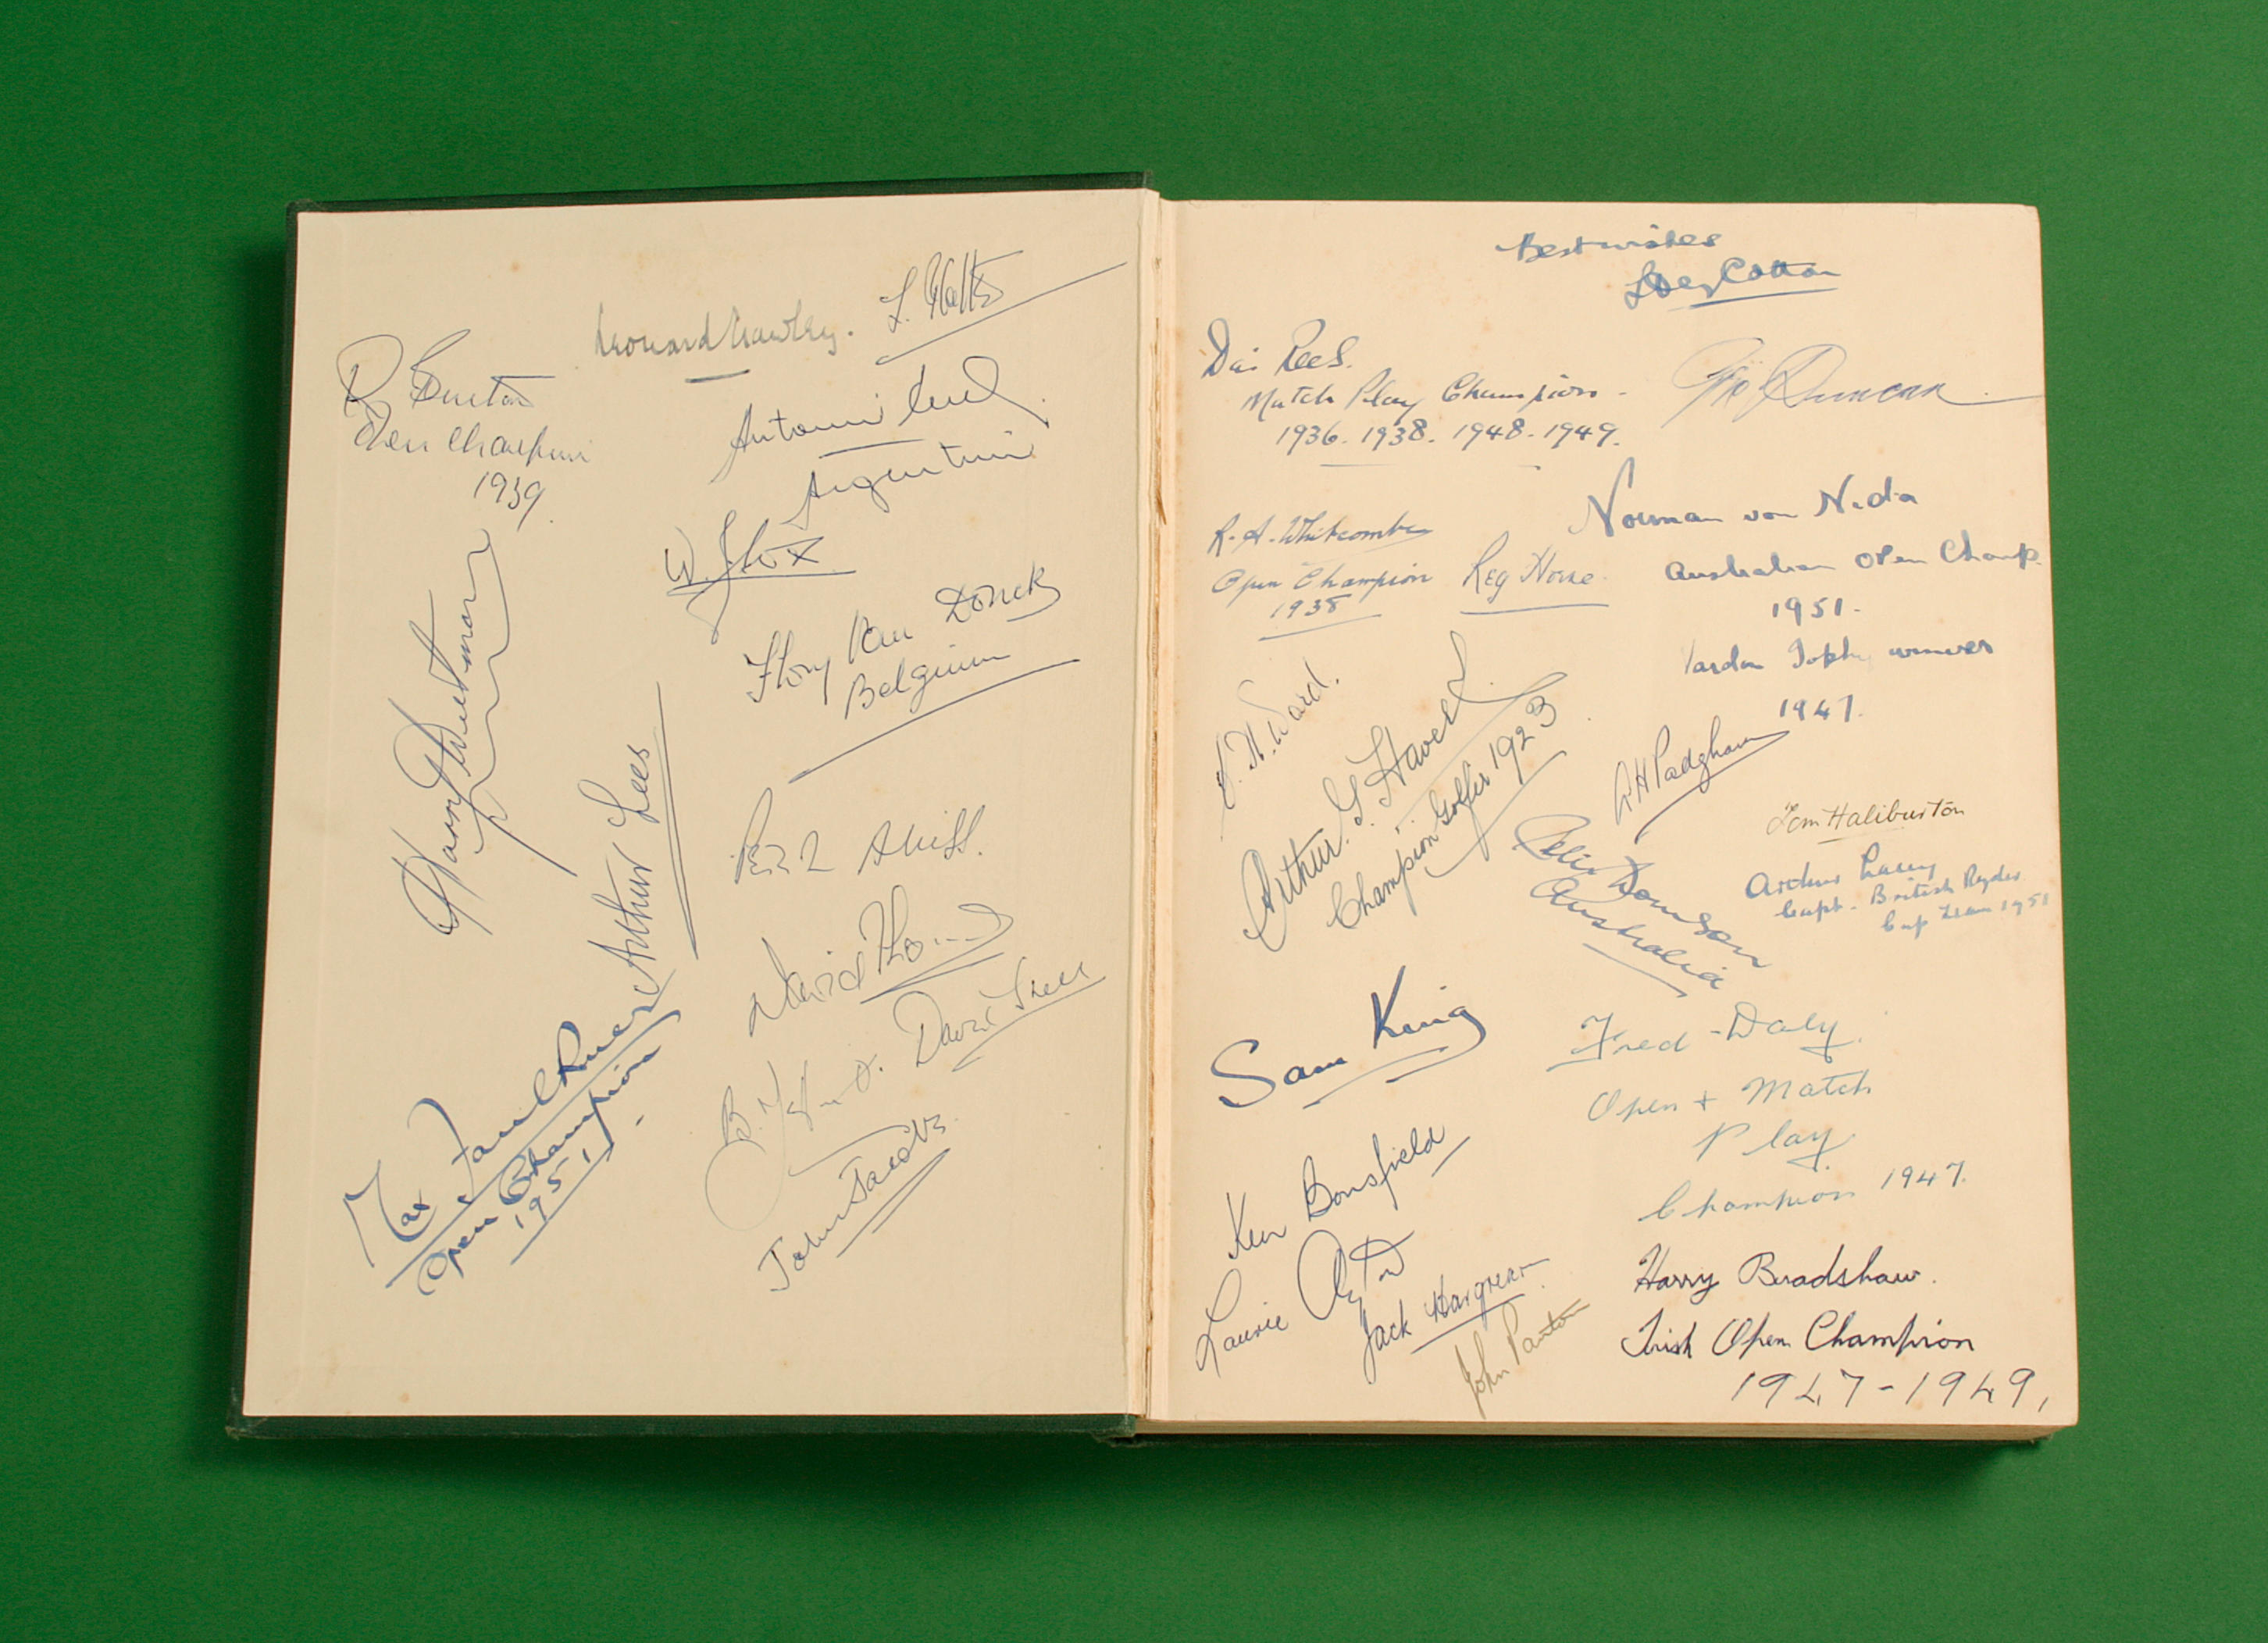 Leonard Crawley.
R Burton
Open Champion
1939.
Antonio
Argentina
W. J. Cox
Flory Van Donck
Belgium
Arthur Lees
Percy Alliss.
David Thomas
David Snell
Max Faulkner
Open Champion
1951
John Jacobs
Best wishes
Cotton
Dai Rees.
Match Play Champion -
1936. 1938. 1948. 1949.
Geo Duncan
Norman von Nida
Australian Open Champ.
1951.
Vardon Trophy winner
1947.
R. A. Whitcombe
Open Champion
1938
Reg Horne.
Ward.
Arthur. G. Havers.
Champion Golfer 1923
A H Padgham
Tom Haliburton
Arthur Lacey
Capt. British Ryder
Cup Team 1951
Australia
Sam King
Fred Daly.
Open + Match
Play.
Champion 1947.
Ken Bousfield
Laurie Ayton
Jack Hargreaves
John Panton
Harry Bradshaw.
Irish Open Champion
1947-1949,